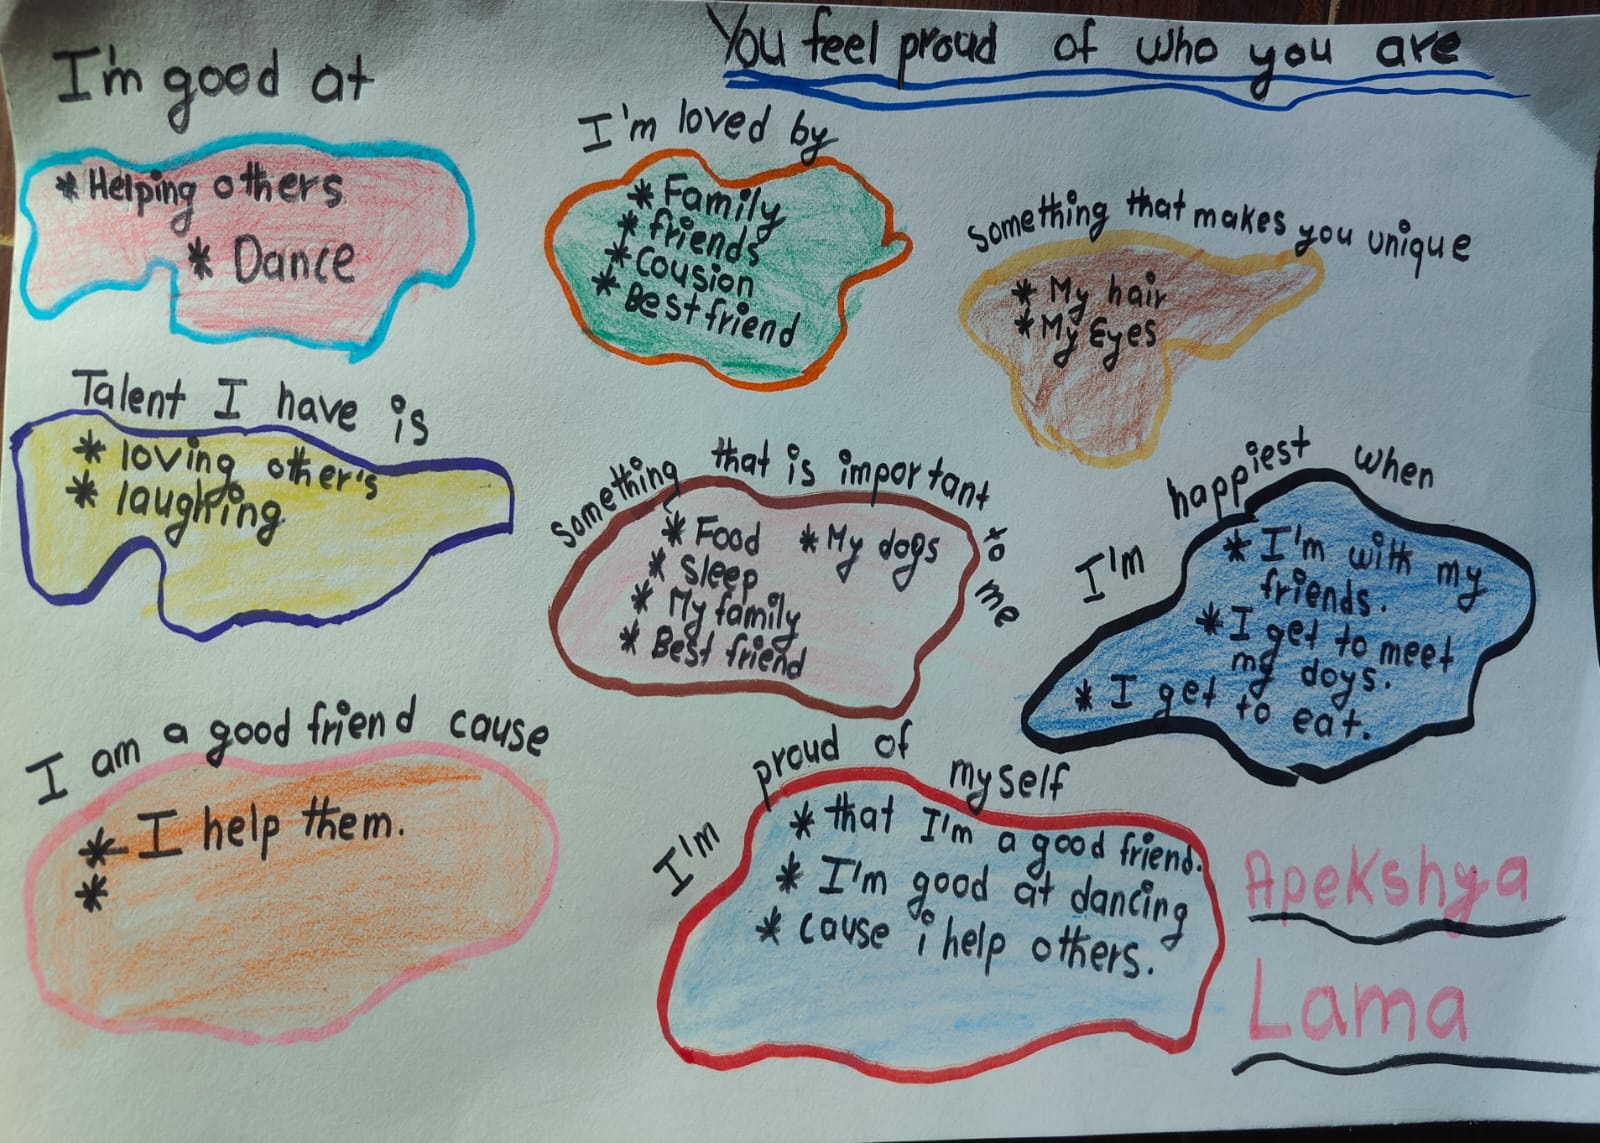 You feel proud of who you are
I'm good at
* Helping others
* Dance
I'm loved by
* Family
* friends
* Cousion
* Best friend
Something that makes you unique
* My hair
* My Eyes
Talent I have is
* loving other's
* laughing
Something that is important to me
* Food * My dogs
* Sleep
* My family
* Best friend
I'm happiest when
* I'm with my
friends.
* I get to meet
my dogs.
* I get to eat.
I am a good friend cause
* I help them.
*
I'm proud of myself
* that I'm a good friend.
* I'm good at dancing
* cause i help others.
Apekshya
Lama